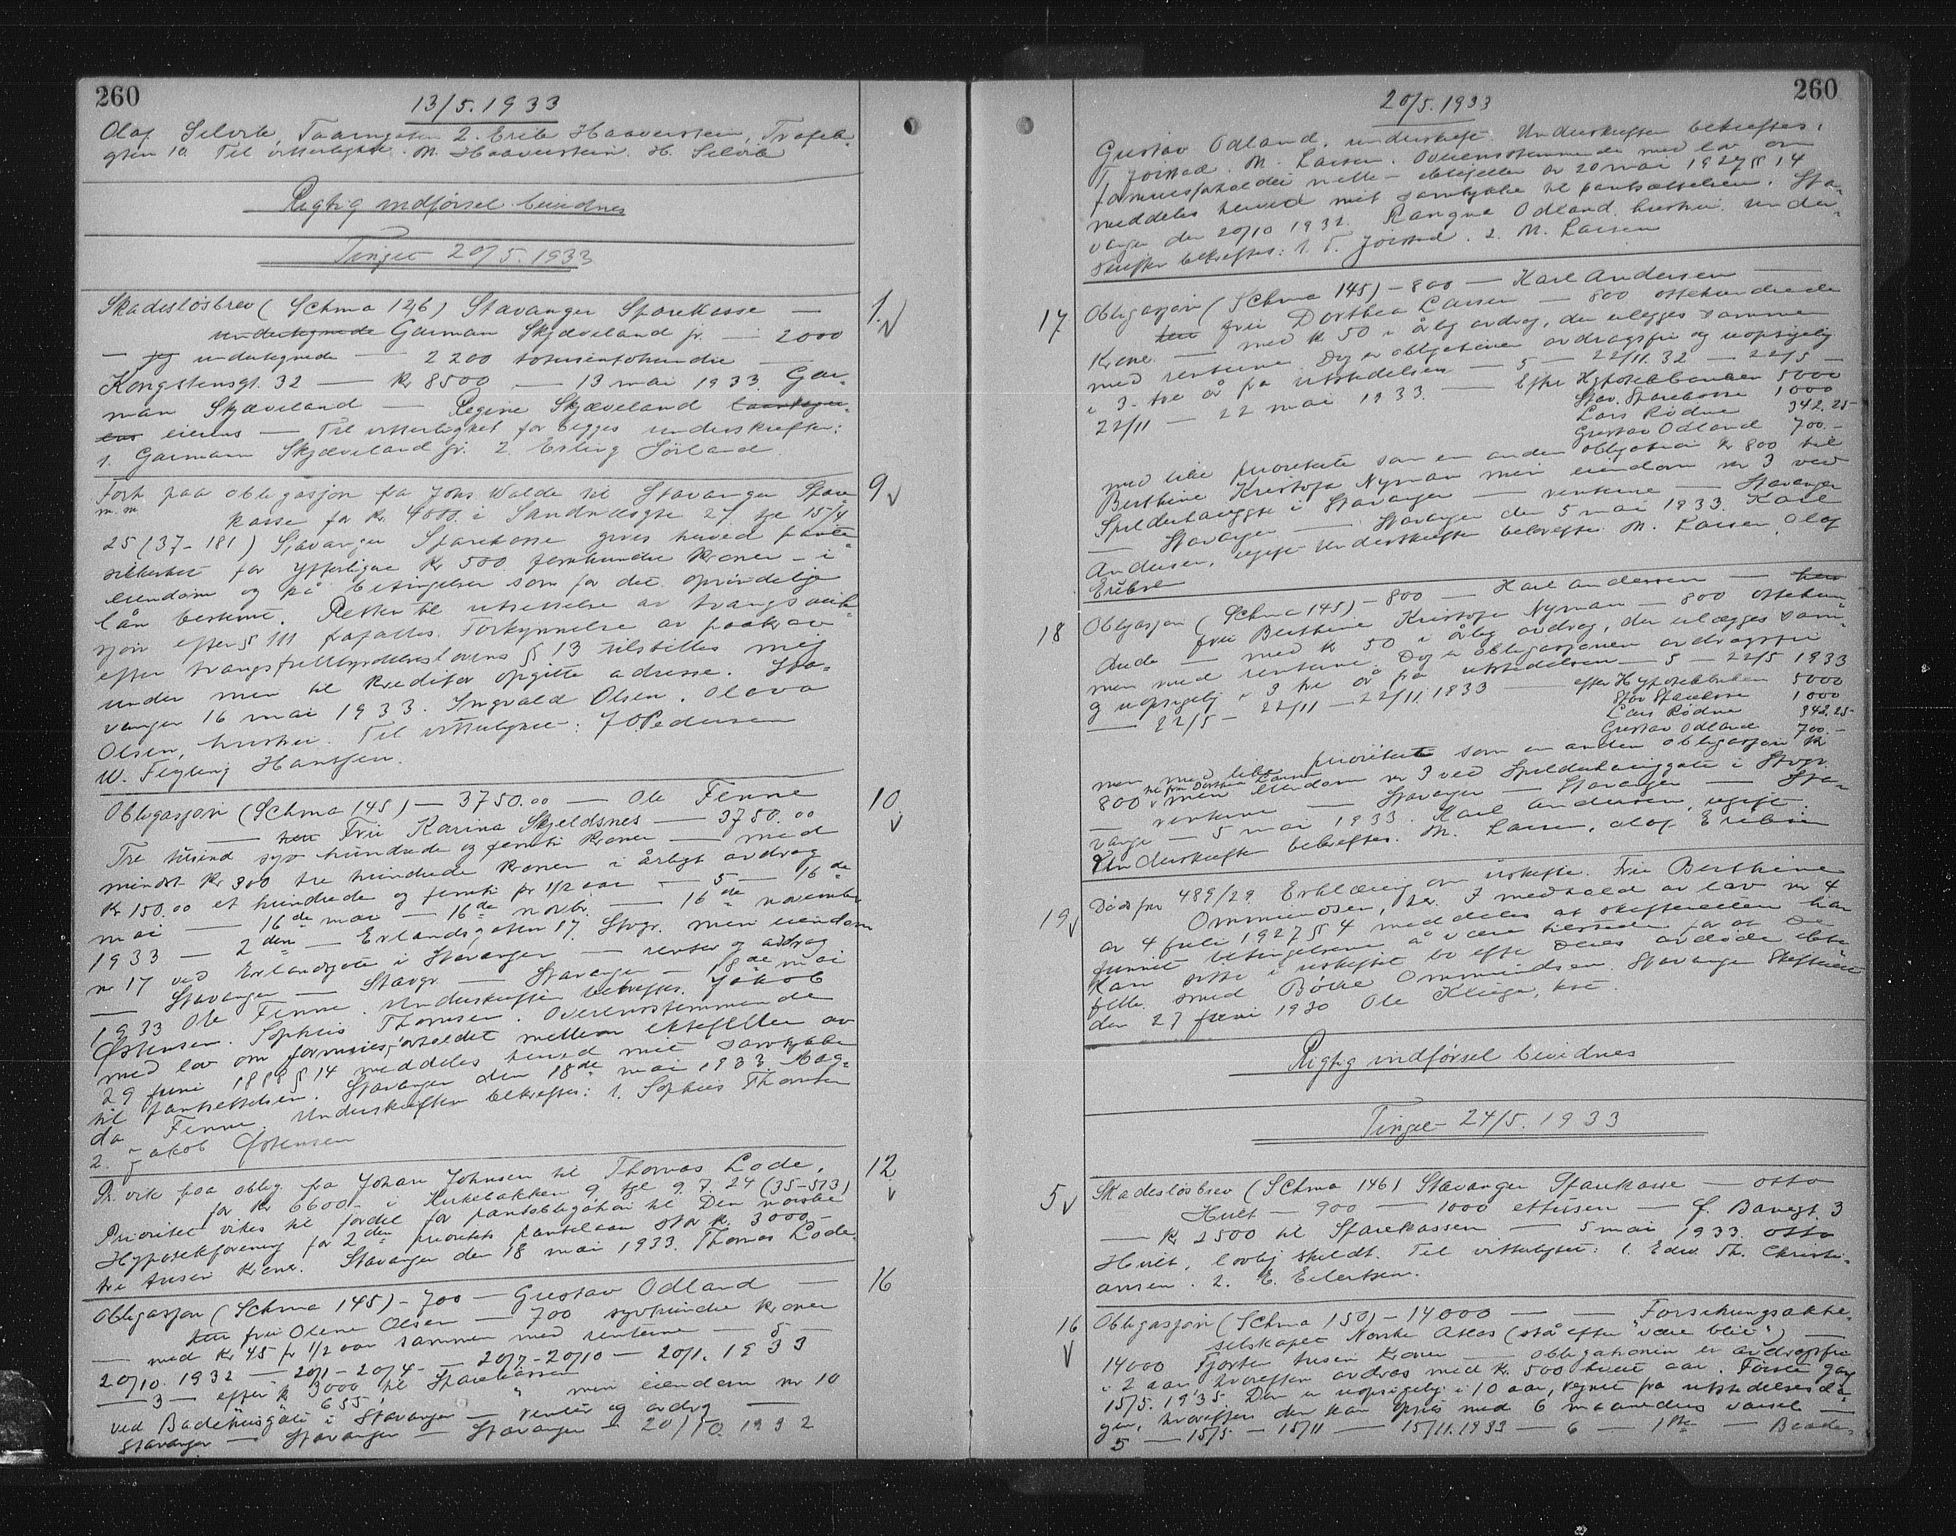 260
13/5.1933
Olaf Selvik, Taarngaten 2. Erik Haaverstein,
gten 10 Til vitterlighet. M. Haaverstein. H. Selvik
Rigtig indførsel bevidnes
Tinget 20/5.1933
Skadesløsbrev (Schma 146) Stavanger Sparekasse —
undertegnede Garman Skjæveland jr. — 2000
— jeg undertegnede — 2200 totusentohundre —
Kongstensgt. 32 — Kr 8500 — 13 mai 1933. Gar-
man Skjæveland — Regine Skjæveland
eierens — Til vitterlighet for begges underskrifter:
1. Garmann Skjæveland jr. 2. Erling Sørland.
1.
Forh. paa obligasjon fra Johs. Walde til Stavanger Spare
m.m. kasse for kr. 4000. i Sandnæsgte 27 tgl 15/4
25 (37-181) Stavanger Sparekasse gives herved pante-
sikkerhet for ytterligere Kr 500 femhundre kroner — i
eiendom og på betingelser som for det oprindelige
lån bestemt. Retten til utsettelse av tvangsauk-
sjon efter § 111 frafalles. Forkynnelse av paakrav
efter tvangsfullbyrdelseslovens § 13 tilstilles mig
under min til kreditor opgitte adresse. Sta-
vanger 16 mai 1933. Ingvald Olsen. Olava
Olsen, hustru. Til vitterlighet: J.O. Pedersen
W. Hansen.
9
Obligasjon (Schma 145) — 3750.00 — Ole Finne
— hen Fru Karina Skjeldsnes — 3750.00
Tre tusind syv hundrede og femti kroner — med
mindst kr 300 tre hundrede kroner i årligt avdrag
Kr 150.00 et hundrede og femti pr 1/2 aar — 5 — 16de
mai — 16de mai — 16de novbr. — 16de november
1933 — 2den — Erlandsgaten 17 Stvgr. min eiendom
nr 17 ved Erlandsgate i Stavanger — renter og avdrag
— Stavanger — Stavgr — Stavanger — 18de mai
1933 Ole Finne. Underskriften bekreftes. Jakob
Østensen. Sophus Thomsen. Overensstemmende
med lov om formuesforholdet mellem ektefeller av
29 juni 1888 § 14 meddeles herved mit samtykke
til pantsettelsen. Stavanger den 18de mai 1933. Mag-
da Finne. Underskriften bekreftes: 1. Sophus Thomsen
2. Jakob Østensen
10
Pr. vik paa oblig. fra Johan Johnsen til Thomas Lode,
for kr 6600.- i Kirkebakken 9, tgl 9.7.24 (35-513)
Prioritet vikes til fordel for pantobligation til Den norske
Hypotekforening for 2den prioritets pantelaan stor kr. 3000.-
tre tusen kroner. Stavanger den 18 mai 1933. Thomas Lode.
12
Obligasjon (Schma 145) - 700 — Gustav Odland —
hen fru Olene Olsen — 700 syvhundre kroner
— med Kr 45 pr 1/2 aar sammen med renterne — 5 —
20/10.1932 — 20/1 - 20/4 — 20/7 - 20/10 — 20/1. 1933
— 3 — efter kr 3000 til Sparekassen
655, " min eiendom nr 10
ved Badehusgate i Stavanger — renter og avdrag —
Stavanger — Stavanger — Stavanger — 20/10.1932
16
260
20/5.1933
Gustav Odland. underskrift. Underskriften bekreftes:
T. Joistad. M. Larsen. Overensstemmende med lov om
formuesforholdet mellem ektefeller av 20 mai 1927 § 14
meddeles herved mit samtykke til pantsættelsen. Sta-
vanger den 20/10 1932. Ragna Odland hustru. Under-
skriften bekreftes: 1. T. Joistad. 2. M. Larsen
17
Obligasjon (Schma 145) - 800 — Karl Andersen —
hen fru Dorthea Larsen — 800 ottehundrede
Kroner — med kr 50 i årlig avdrag, der erlegges sammen
med renterne. Dog er obligationen avdragsfri og uopsigelig
i 3 - tre år fra utstedelsen — 5 — 22/11.32 — 22/5 —
22/11 — 22 mai 1933. — Efter Hypotekbanken 5000
Stav. Sparekasse 1000
Lars Rødne 342.25-
Gustav Odland 700.-
med like prioritet som en anden obligation kr 800 til
Berthine Kristofa Nyman min eiendom nr 3 ved
Spilderhauggte i Stavanger — renterne — Stavanger
— Stavanger — Stavanger den 5 mai 1933. Karl
Andersen, ugift. Underskriften bekreftes M. Larsen, Olaf
18
Obligasjon (Schma 145) - 800 — Karl Andersen — hen
fru Berthine Kristofa Nyman — 800 ottehun-
drede — med kr 50 i årlig avdrag, der erlægges sam-
men med renterne. Dog er obligasjonen avdragsfri
og uopsigelig i 3 tre år fra utstedelsen — 5 — 22/5 1933
— 22/5 — 22/11 — 22/11.1933 — efter Hypotekbanken 5000
Stav Sparekasse 1000
Lars Rødne 342.25-
Gustav Odland 700.-
men med like prioritet som en anden obligasjon kr
800 til fru Dorthea Larsen min eiendom nr 3 ved Spilderhauggate i Stvgr.
— renterne — Stavanger — Stavanger — Sta-
vanger — 5 mai 1933. Karl Andersen, ugift.
Underskriften bekreftes. M. Larsen, Olaf
19
Dødsfnr 489/29 Erklæring om uskifte. Fru Berthine
Ommundsen, her. I medhold av lov nr 4
av 4 juli 1927 § 4 meddeles at skifteretten har
funnet betingelsene å være tilstede for at De
kan sitte i uskiftet bo efter Deres avdøde ekte-
felle smed Børre Ommundsen. Stavanger Skifterett
den 27 juni 1930 Ole Kluge, kst.
Rigtig indførsel bevidnes
Tinget 24/5.1933
5
Skadesløsbrev (Schma 146) Stavanger Sparekasse — Otto
Hult — 900 — 1000 ettusen — f. Banegt. 3
— kr 2500 til Sparekassen — 5 mai 1933. Otto
Hult, lovlig skildt. Til vitterlighet: 1. Edw. Th. Christi-
ansen. 2. E. Eilertsen.
16
Obligasjon (Schma 150) - 14000 — — Forsikringsaktie-
selskapet Norske Atlas (stå efter "være blir") —
14000 Fjorten tusen kroner — obligationen er avdragsfri
i 2 aar, hvorefter avdras med kr. 500 hvert aar. Første gang
15/5.1935. Den er uopsigelig i 10 aar, regnet fra utstedelsesda-
gen, hvorefter den kan opsies med 6 maaneders varsel —
5 — 15/5 — 15/11 — 15/11.1933 — 6 — 1ste —